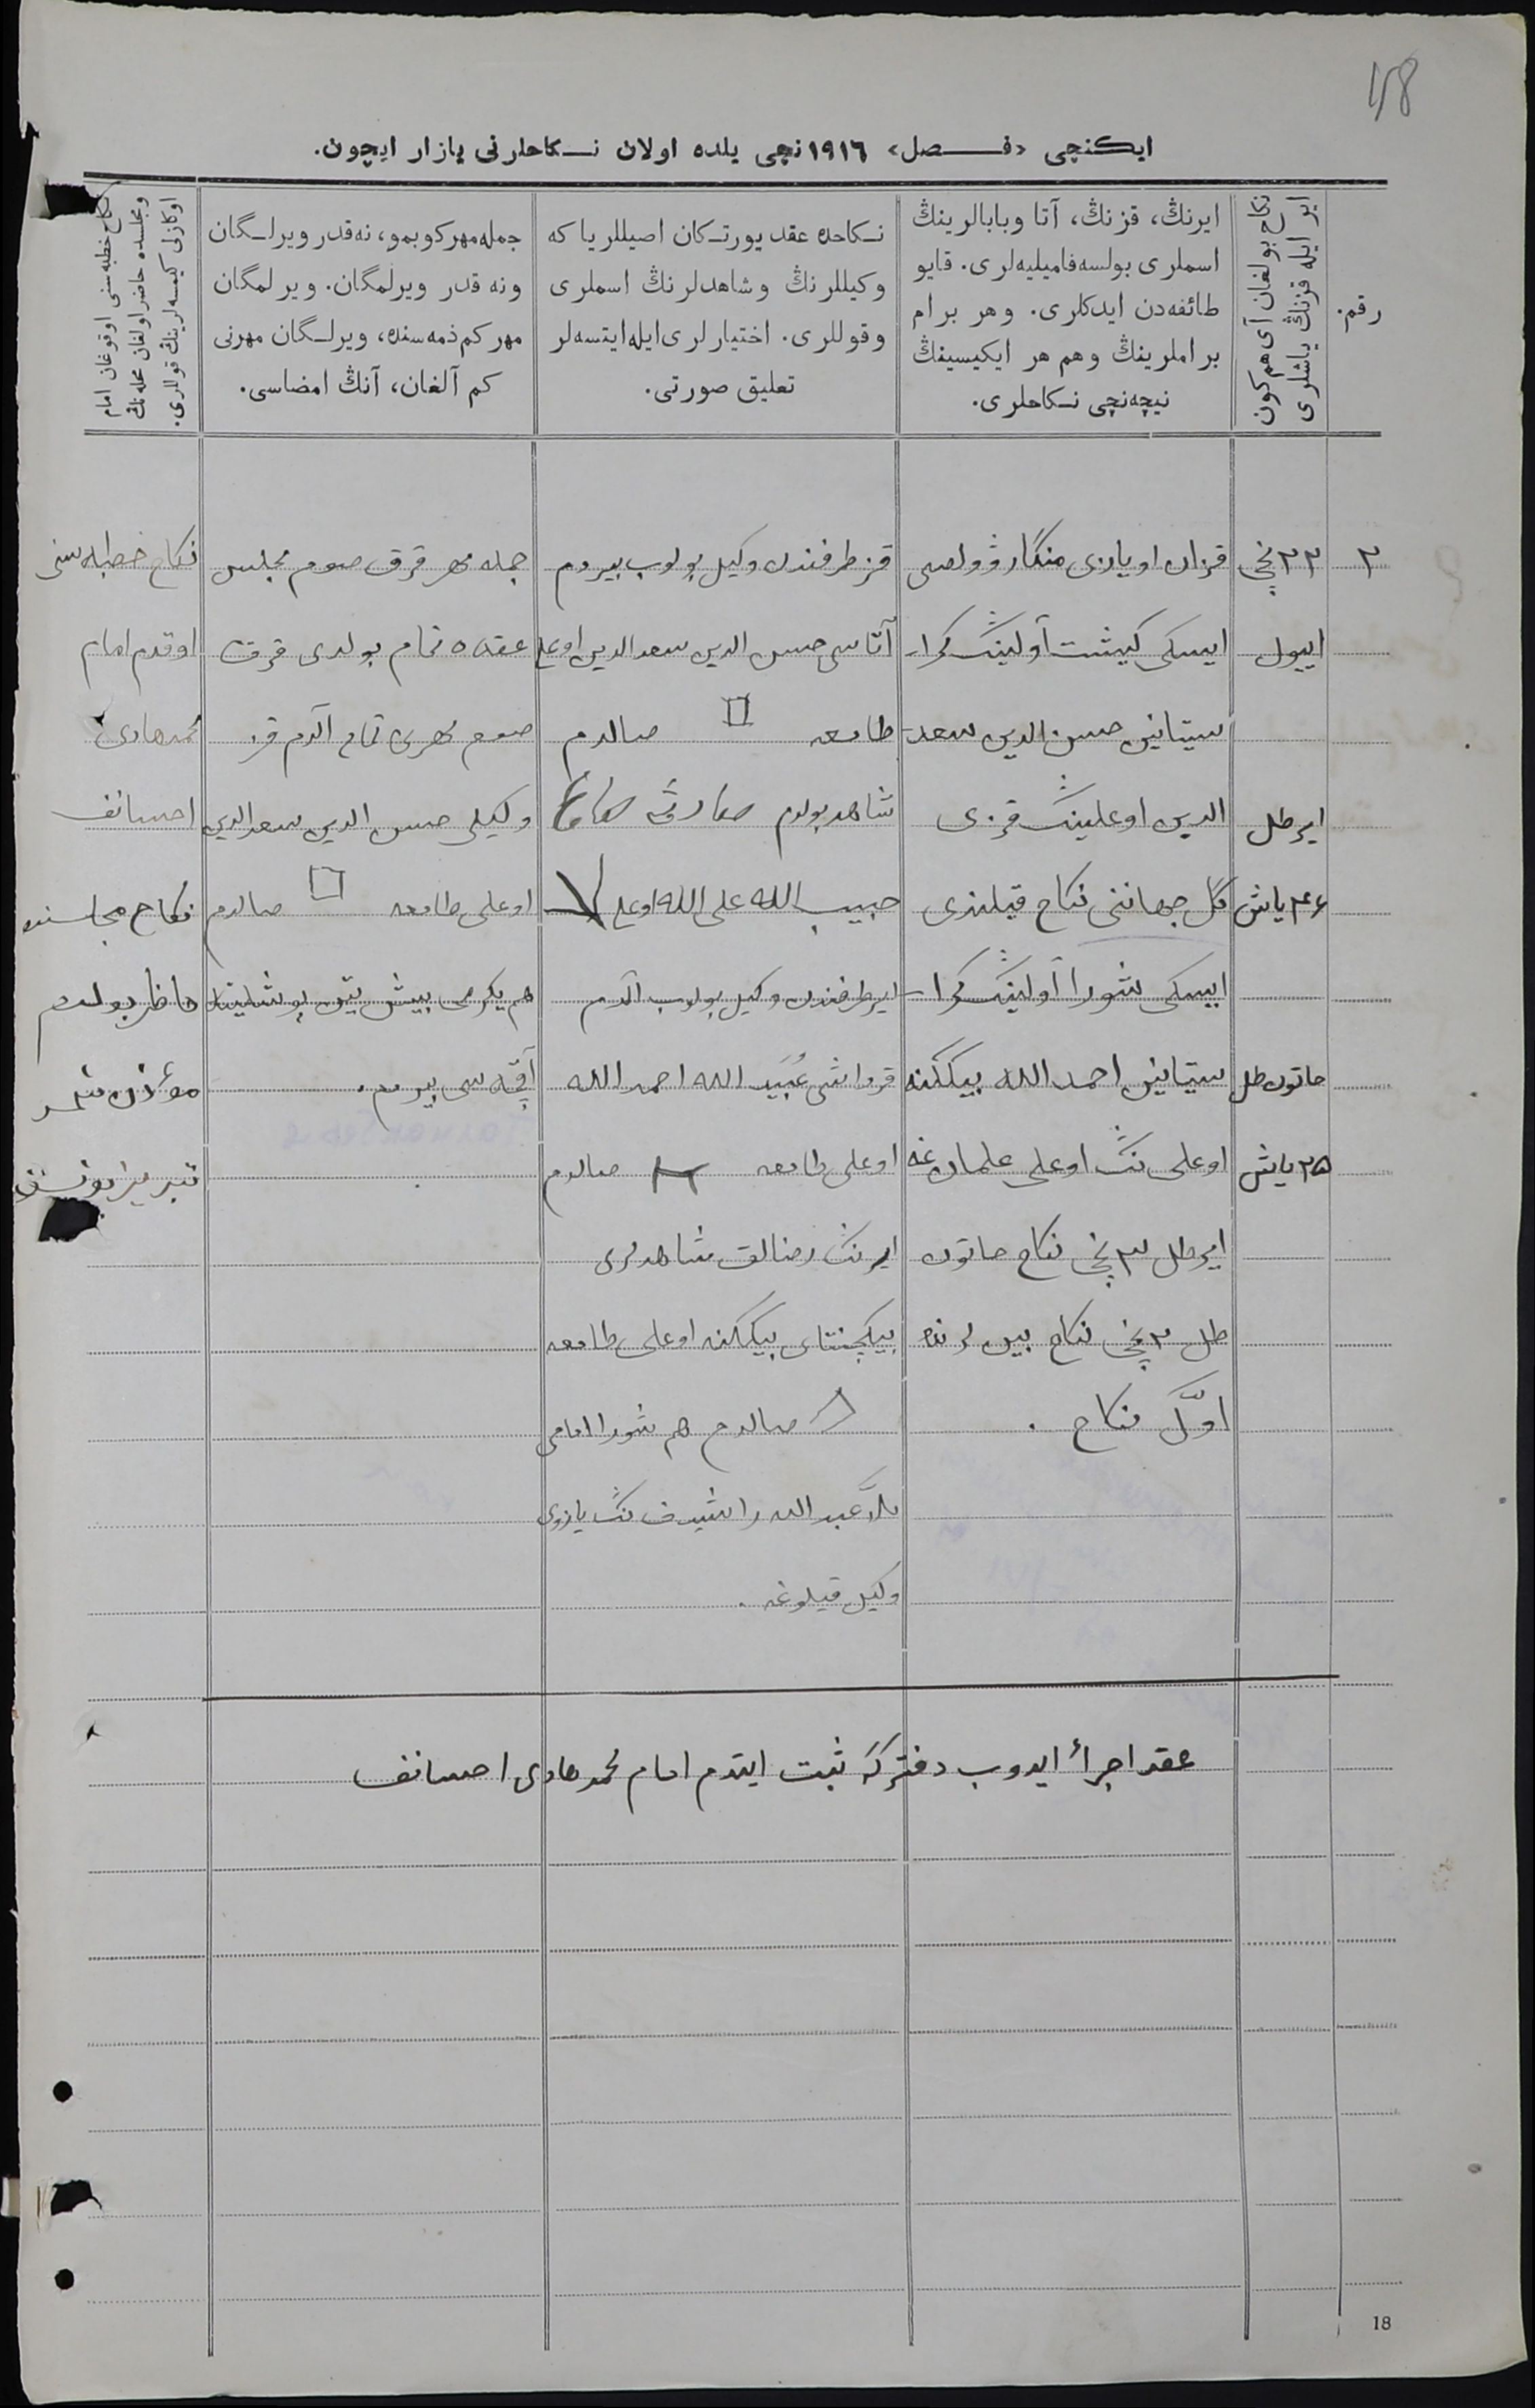 158
ایکنچی «فـــصل» ١٩١٦ نچی یلده اولان نـکاحلرنی یازار ایچون.
رقم.
نکاح بولغان آی هم کون
ایر ایله قزنڭ یاشلری
ایرنڭ، قزنڭ، آتا وبابالرینڭ
اسملری بولسه فامیلیه‌لری. قایو
طائفه‌دن ایدکلری. وهر برام
براملرینڭ وهم هر ایکیسینڭ
نیچه‌نچی نـکاحلری.
نـکاحده عقد یورتـکان اصیللر یا که
وکیللرنڭ وشاهدلرنڭ اسملری
وقوللری. اختیارلری ایله ایتسه‌لر
تعلیق صورتی.
جمله مهر کوبمو، نه‌قدر ویرلـگان
ونه قدر ویرلمگان. ویرلمگان
مهر کم ذمه‌سنده، ویرلـگان مهرنی
کم آلغان، آنڭ امضاسی.
نکاح خطبه‌سنی اوقوغان امام
ومجلسده حاضر اولغان محله‌نڭ
اوکازلی کیمسه‌لرینڭ قوللری.
٢
٢٢ نچی
اییول
ایر طل
٤٦ یاش
خاتون طل
٢٥ یاش
قزان اویازی منگار ڤولصی
ایسکی کیشت آولینڭ کرا-
ستیانین حسن الدین سعد-
الدین اوغلینڭ قزی
گل جهاننی نکاح قیلندی
ایسکی شورا آولینڭ کرا-
ستیانین احمد الله بیککنه
اوغلی نڭ اوغلی علمان غه
ایر طل ٣ نچی نکاح خاتون
طل ٢ نچی نکاح بین لرنده
اوّل نکاح .
قز طرفندن وکیل بولوب بیردم
آتاسی حسن الدین سعد الدین اوغلی
طامغه صالدم
شاهد بولدم
حبیب الله علی الله اوغلی
ایر طرفندن وکیل بولوب آلدم
قرداشی عُبَید الله احمد الله
اوغلی طامغه صالدم
ایر نڭ رضالق شاهدلری
بیکچنتای بیککنه اوغلی طامغه
صالدم هم شورا امامی
ملاّ عبد الله راشیدف نڭ یازوی
وکیل قیلوغه .
جمله مهر قرق صوم مجلس
عقده تمام بولدی قرق
صوم مهرنی تمام آلدم قز
وکیلی حسن الدین سعد الدین
اوغلی طامغه صالدم
هم یکرمی بیش تین پوشلینه
آقچه سی بیردم .
نکاح خطبه سنی
اوقدم امام
محمدهادی
احسانف
نکاح مجلسنده
حاضر بولدم
مؤذن شمس
عقد اجرأ ایدوب دفترکه ثبت ایتدم امام محمدهادی احسانف
18